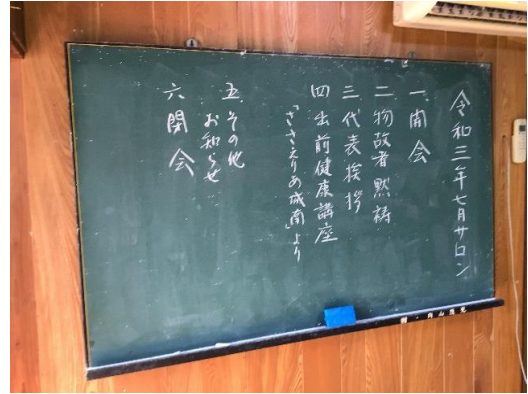 令和三年七月サロン
一、開会
二、物故者黙祷
三、代表挨拶
四 出前健康講座
「ささえりあ城南」より
五、その他
お知らせ
六、閉会